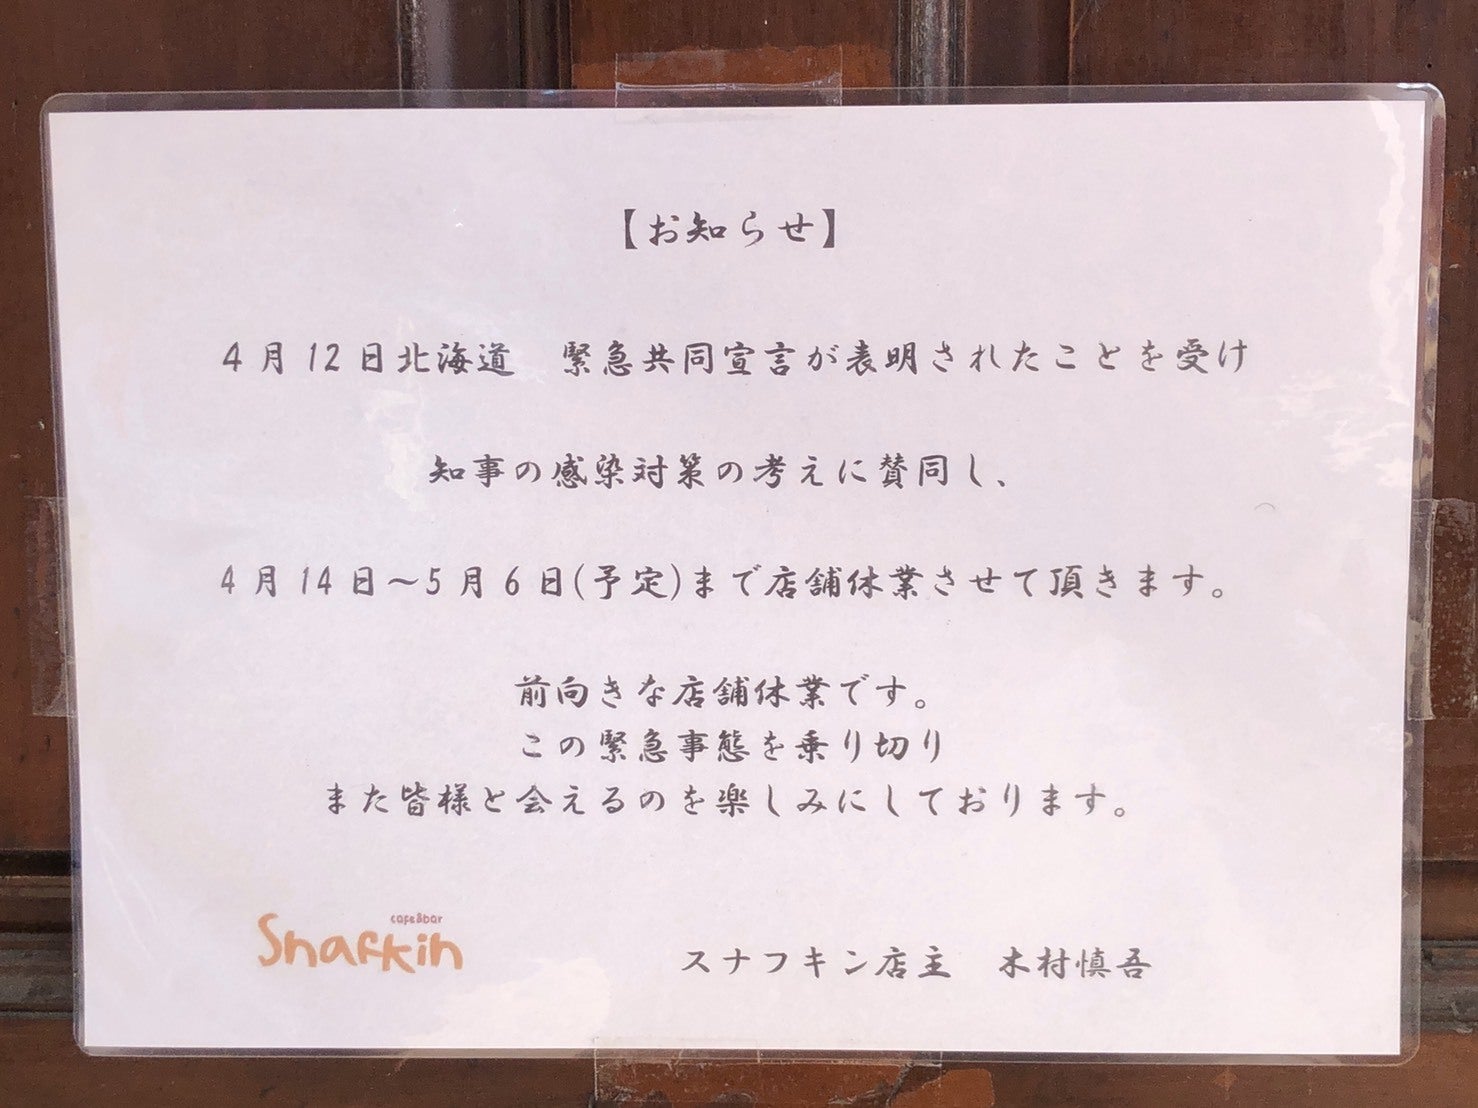 【お知らせ】
4月12日北海道　緊急共同宣言が表明されたことを受け
知事の感染対策の考えに賛同し、
4月14日～5月6日(予定)まで店舗休業させて頂きます。
前向きな店舗休業です。
この緊急事態を乗り切り
また皆様と会えるのを楽しみにしております。
cafe&bar
Snafkin
スナフキン店主　木村慎吾